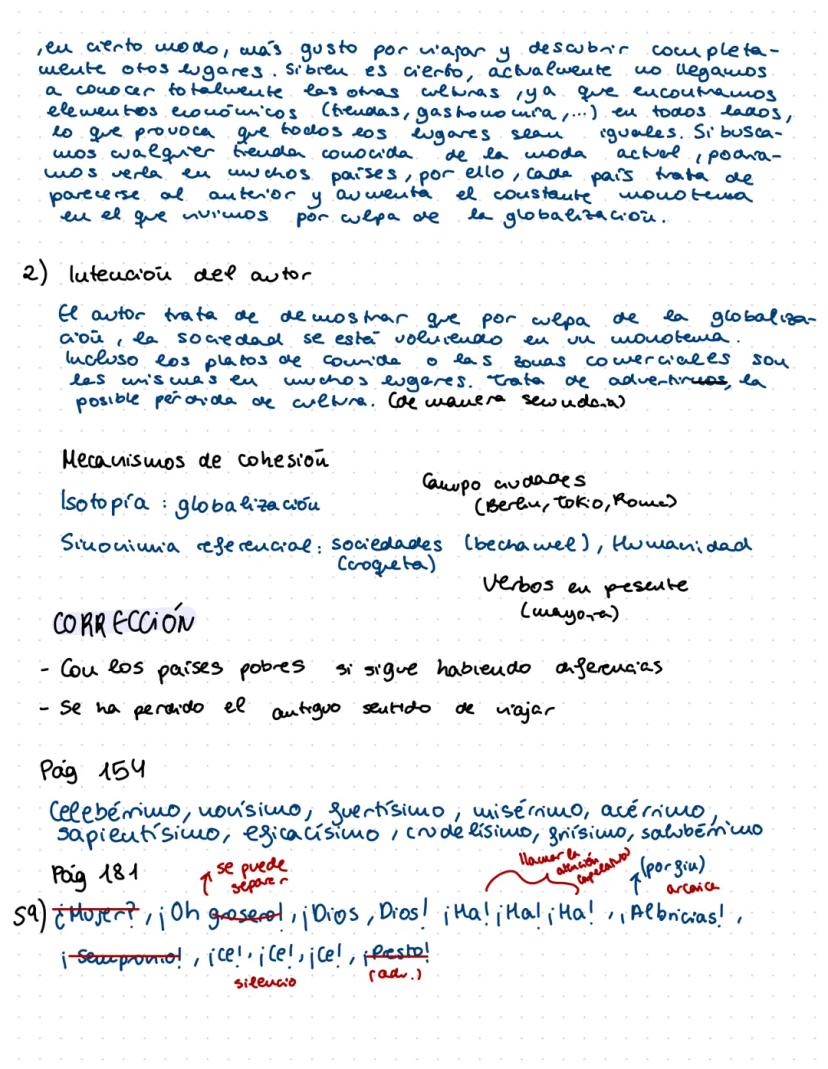 , en cierto modo, más gusto por viajar y descubrir completa-
mente otos lugares. Si bien es cierto, actualmente no llegamos
a conocer totalmente las otras culturas, ya que encontramos
elementos económicos (tiendas, gastronomía,...) en todos lados,
lo que provoca que todos los lugares sean iguales. Si busca-
mos cualquier tienda conocida de la moda actual, podría-
mos verla en muchos países, por ello, cada país trata de
parecerse al anterior y aumenta el constante monotema
en el que vivimos por culpa de la globalización.
2) Intención del autor
El autor trata de demostrar que por culpa de la globaliza-
ción, la sociedad se está volviendo en un monotema.
Incluso los platos de comida o las zonas comerciales son
las mismas en muchos lugares. Trata de advertirnos, la
posible pérdida de cultura. (de manera secundaria)
Mecanismos de cohesión
Campo ciudades
(Berlín, Tokio, Roma)
Isotopía : globalización
Sinonimia referencial: sociedades (bechamel), Humanidad
(croqueta)
Verbos en presente
(mayoría)
CORRECCIÓN
- Con los países pobres si sigue habiendo diferencias
- Se ha perdido el antiguo sentido de viajar
Pág 154
Celebérrimo, novísimo, fuertísimo, misérrimo, acérrimo,
sapientísimo, eficacísimo, crudelísimo, friísimo, salubérrimo
Pág 181
se puede
separar
llamar la
atención
(apelativa)
(por fin)
arcaica
5a) ¿Mujer?, ¡Oh grosero!, ¡Dios, Dios! ¡Ha! ¡Ha! ¡Ha!, ¡Albricias!,
¡Sempronio!, ¡Ce!, ¡Ce!, ¡Ce!, ¡Presto!
silencio
(adv.)